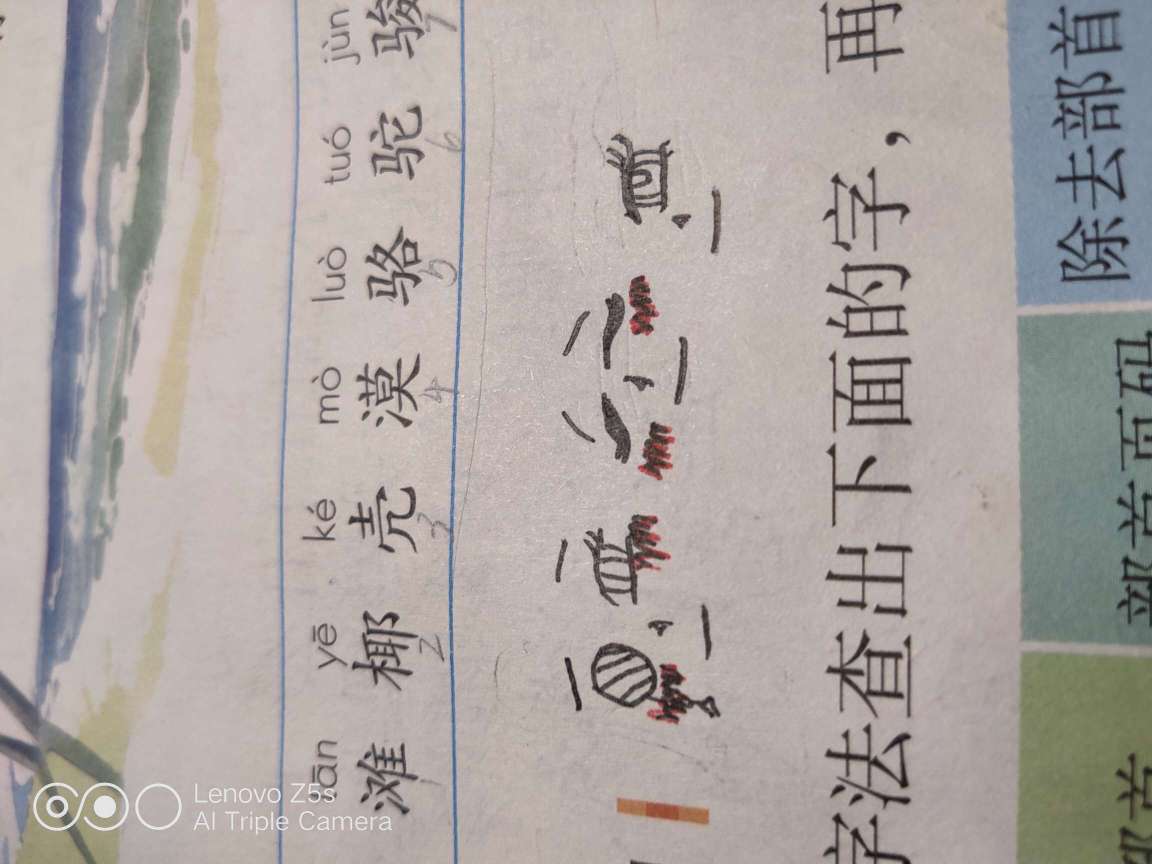 tān yē ké mò luò tuó jùn
滩 椰 壳 漠 骆 驼 骏
2 3 4 5 6 7
字法查出下面的字，再
部首 部首页码 除去部首
Lenovo Z5s
AI Triple Camera